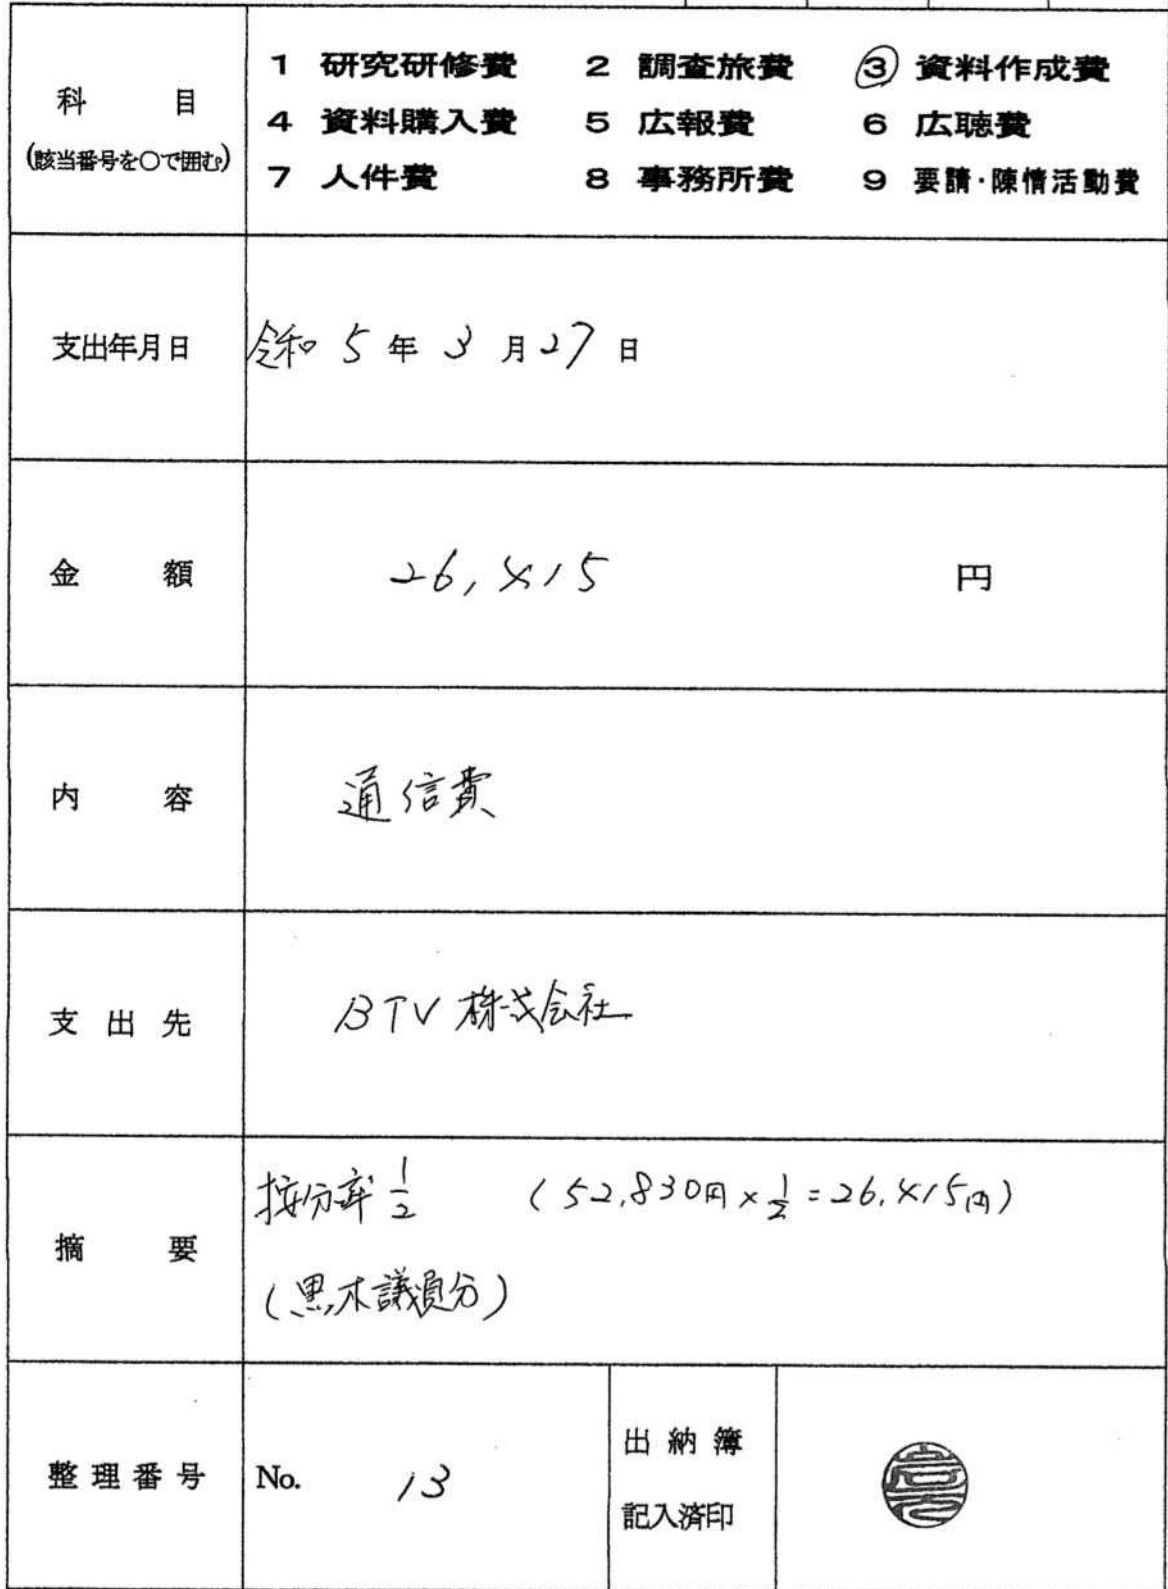 科目
(該当番号を〇で囲む。)
1 研究研修費 2 調査旅費 ③ 資料作成費
4 資料購入費 5 広報費 6 広聴費
7 人件費 8 事務所費 9 要請・陳情活動費
支出年月日 令和 5 年 3 月 27 日
金額 26,415 円
内容 通信費
支出先 BTV 株式会社
摘要
按分率 1/2 (52,830円×1/2=26,415円)
(黒木議員分)
整理番号 No. 13
出納簿
記入済印